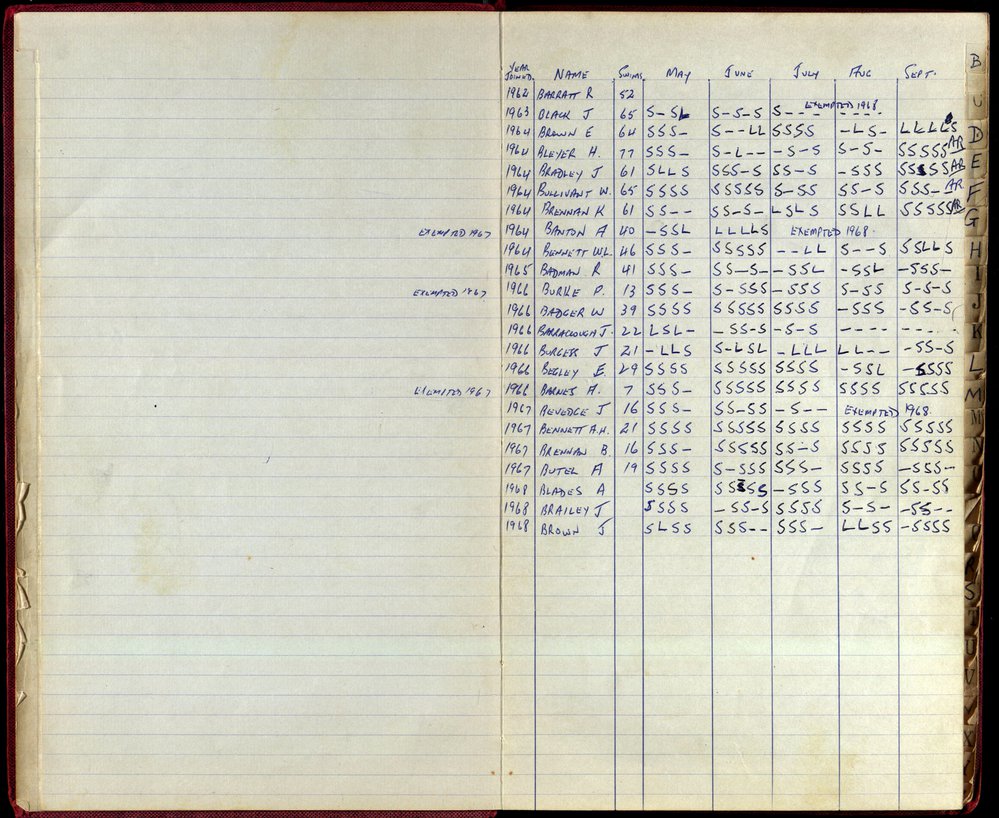 YEAR JOINED NAME SWIMS MAY JUNE JULY AUG SEPT.
1962 BARRATT R 52
1963 BLACK J 65 S-SL S-S-S S--- EXEMPTED 1968 ----
1964 BROWN E 64 SSS- S--LL SSSS -LS- LLLLS
1964 BLEYER H. 77 SSS- S-L-- -S-S S-S- SSSSS AR
1964 BRADLEY J 61 SLLS SSS-S SS-S -SSS SSSSS AR
1964 BULLIVANT W. 65 SSSS SSSSS S-SS SS-S SSS-- AR
1964 BRENNAN K 61 SS-- SS-S- LSLS SSLL SSSSS AR
EXEMPTED 1967 1964 BANTON A 40 -SSL LLLLS EXEMPTED 1968.
1964 BENNETT WL. 46 SSS- SSSSS --LL S--S SSLLS
1965 BADMAN R 41 SSS- SS-S- -SSL -SSL -SSS-
EXEMPTED 1967 1966 BURKE P. 13 SSS- S-SSS -SSS S-SS S-S-S
1966 BADGER W 39 SSSS SSSSS SSSS -SSS -SS-S
1966 BARRACLOUGH J. 22 LSL- -SS-S -S-S ---- -----
1966 BURGESS J 21 -LLS S-LSL -LLL LL-- -SS-S
1966 BEGLEY E. 29 SSSS SSSSS SSSS -SSL -SSSS
EXEMPTED 1967 1966 BARNES A. 7 SSS- SSSSS SSSS SSSS SSSSS
1967 BEVEDGE J 16 SSS- SS-SS -S-- EXEMPTED 1968.
1967 BENNETT A.H. 21 SSSS SSSSS SSSS SSSS SSSSS
1967 BRENNAN B. 16 SSS- SSSSS SS-S SSSS SSSSS
1967 BUTEL A 19 SSSS S-SSS SSS- SSSS -SSS-
1968 BLADES A SSSS SSSSS -SSS SS-S SS-SS
1968 BRAILEY J SSSS -SS-S SSSS S-S- -SS--
1968 BROWN J SLSS SSS-- SSS- LLSS -SSSS
B
C
D
E
F
G
H
I
J
K
L
M
N
P
R
S
T
U
V